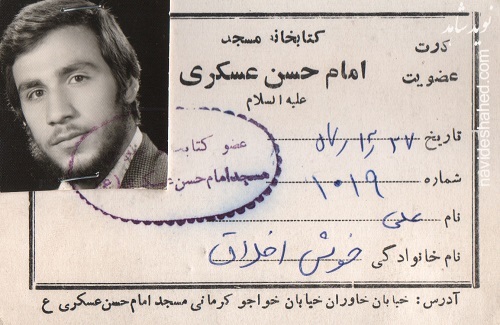 کارت
عضویت
کتابخانه مسجد
امام حسن عسکری
علیه السلام
تاریخ
شماره ۱۰۱۹
نام علی
نام خانوادگی خوش اخلاق
عضو
مسجد امام حسن
آدرس: خیابان خاوران خیابان خواجو کرمانی مسجد امام حسن عسکری ع
نوید شاهد
navideshahed.com